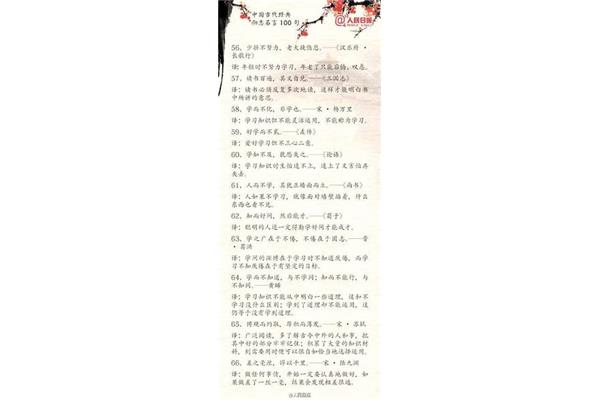 中国古代经典
励志名言 100 句
@人民日报
56、少壮不努力，老大徒伤悲。——《汉乐府·
长歌行》
译：年轻时不努力学习，年老了只能后悔、叹息。
57、读书百遍，其义自见。——《三国志》
译：读书必须反复多次地读，这样才能明白书
中所讲的意思。
58、学而不化，非学也。——宋·杨万里
译：学习知识但不能灵活运用，不能称为学习。
59、好学而不贰。——《左传》
译：爱好学习但不三心二意。
60、学如不及，犹恐失之。——《论语》
译：学习知识时生怕追不上，追上了又害怕再
失去。
61、人而不学，其犹正墙面而立。——《尚书》
译：人如果不学习，就像面对墙壁站着，什么
东西也看不见。
62、知而好问，然后能才。——《荀子》
译：聪明的人还一定得勤学好问才能成才。
63、学之广在于不倦，不倦在于固志。——晋
·葛洪
译：学问的渊博在于学习时不知道厌倦，而学
习不知厌倦在于有坚定的目标。
64、学而不知道，与不学同；知而不能行，与
不知同。——黄晞
译：学习知识不能从中明白一些道理，这和不
学习没什么区别；学到了道理却不能运用，这
仍等于没有学到道理。
65、博观而约取，厚积而薄发。——宋·苏轼
译：广泛阅读，多了解古今中外的人和事，把
其中好的部分牢牢记住；积累了大量的知识材
料，到需要用时便可以很自如恰当地选择运用。
66、差之毫厘，谬以千里。——宋·陆九渊
译：做任何事情，开始一定要认真地做好，如
果做差了一丝一毫，结果会发现相差很远。
@人民日报